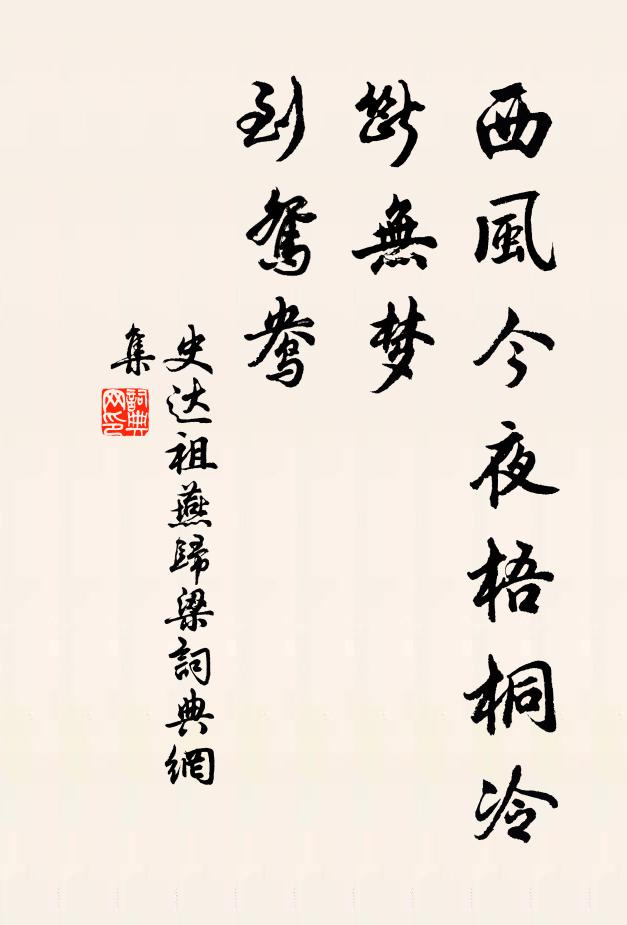 西風今夜梧桐冷
斷無梦
到鴛鴦
史达祖燕歸梁詞典網
集
詞典
网印